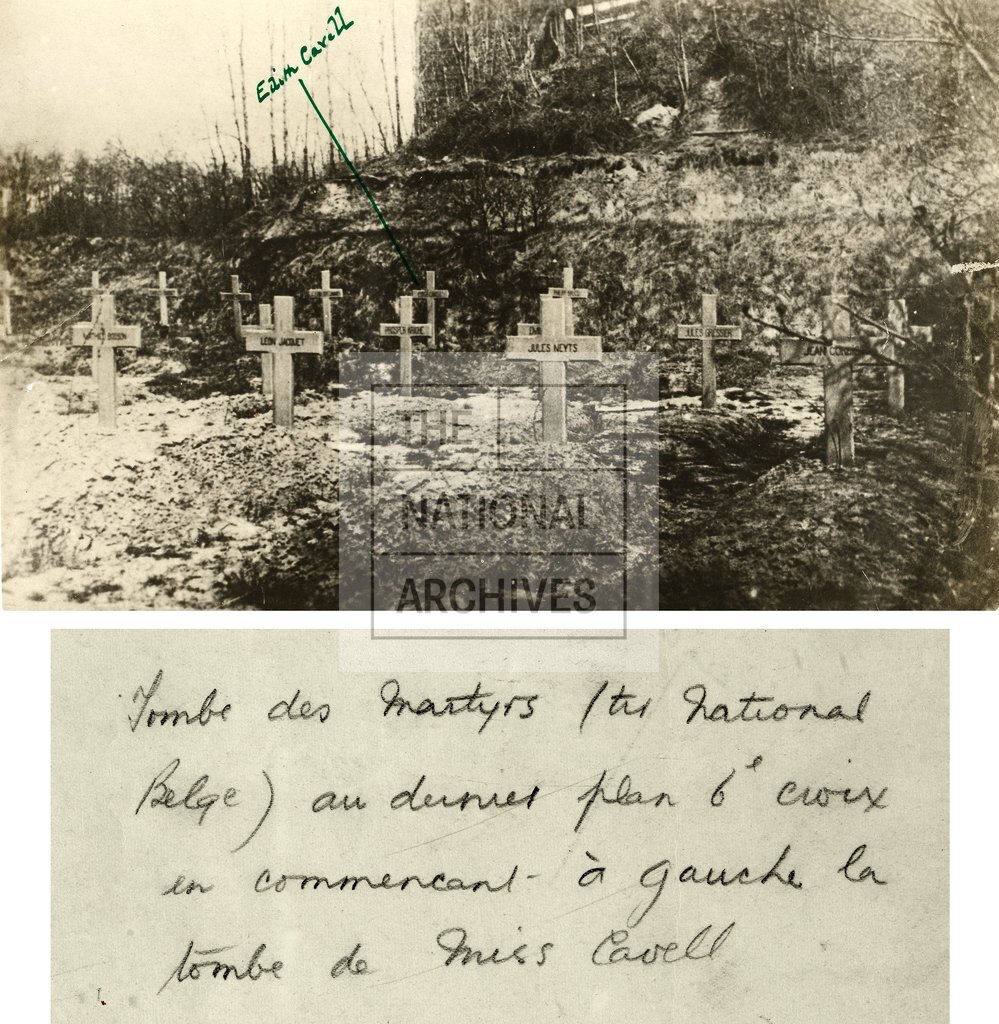 Edith Cavell
PROSPER KRICKE
LEON JACQUET
JULES NEYTS
JEAN
THE
NATIONAL
ARCHIVES
Tombe des Martyrs (tir National
Belge) au dernier plan 6e croix
en commencant à gauche la
tombe de Miss Cavell